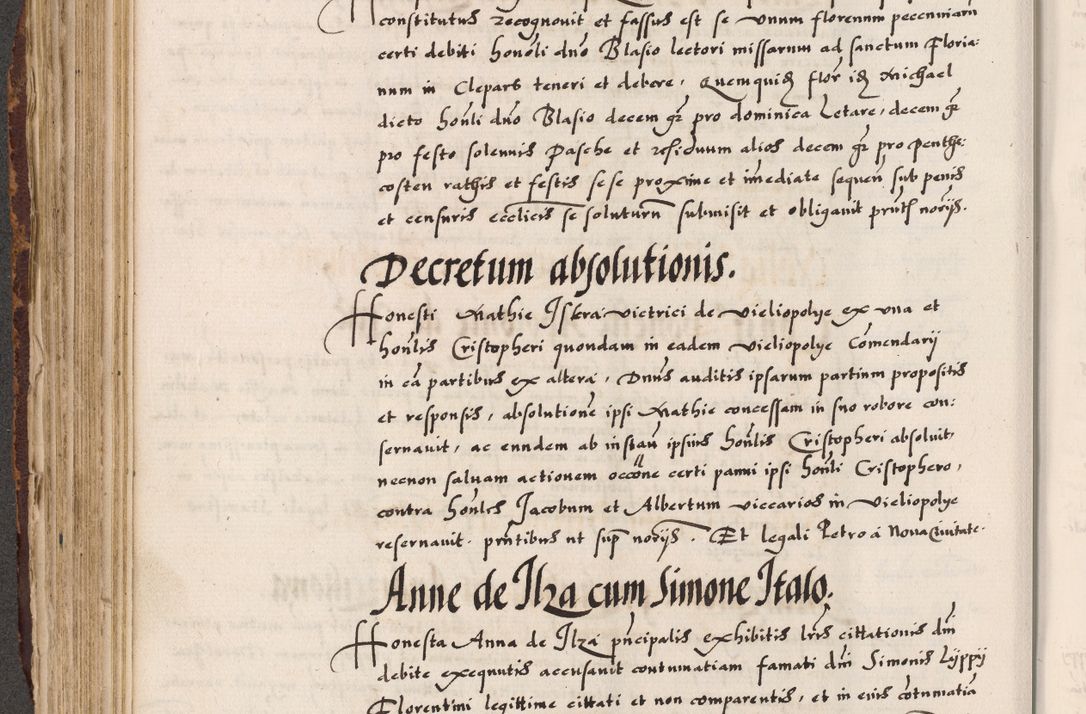 constitutus recognovit et fassus est se unum florenum pecuniarum
certi debiti honoli dno Blasio lectori missarum ad sanctum Floria:
num in Cleparis teneri et debere, Quemquidem flor idem Michael
dicto honli dno Blasio decem gr pro dominica Letare, decem gr
pro festo solennis Pasche et residuum alios decem gr pro penthe:
costen rathis et festis sese proxime et imediate sequen sub penis
et censuris ecclicis se soluturum submisit et obligavit prntl norijs.
Decretum absolutionis.
Honesti Mathie Iskra victrici de vieliopolye ex una et
honlis Cristopheri quondam in eadem vieliopolye Comendarij
in ea partibus ex altera, Dnus auditis ipsarum partium propositis
et responsis, absolutione ipsi Mathie concessam in suo robore con:
servavit, ac eundem ab instan ipsius honlis Cristopheri absolvit,
necnon salvam actionem occone certi panni ipsi honli Cristophero,
contra honles Jacobum et Albertum viccarios in vieliopolye
reservavit. prntibus ut sup norijs. Et legali Petro a Nova Civitate.
Anne de Ilza cum Simone Italo.
Honesta Anna de Ilza principalis exhibitis lris cittationis dni
debite exequutis accusavit contumatiam famati dni Simonis Lyppij
Florentini legittime cittati et non comparentis, et in eius contumatia